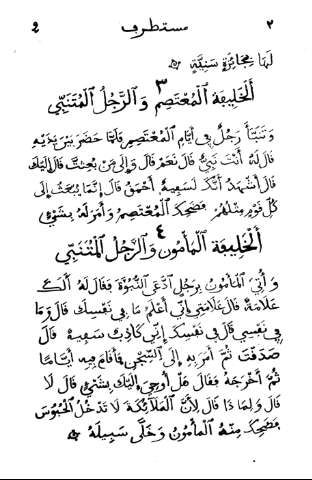 ٢ مستطرف 2
لَهَا بِجَائِزَةٍ سَنِيَّةٍ
٣
اَلْخَلِيفَة الْمُعْتَصِم وَالرَّجُلُ الْمُتَنَبِّي
وَتَنَبَّأَ رَجُلٌ فِي أَيَّامِ الْمُعْتَصِمِ فَلَمَّا حَضَرَ بَيْنَ يَدَيْهِ
قَالَ لَهُ أَنْتَ نَبِيٌّ قَالَ نَعَمْ قَالَ وَإِلَى مَنْ بُعِثْتَ قَالَ إِلَيْكَ
قَالَ أَشْهَدُ أَنَّكَ لَسَفِيهٌ أَحْمَقُ قَالَ إِنَّمَا يُبْعَثُ إِلَى
كُلِّ قَوْمٍ مِثْلُهُمْ فَضَحِكَ الْمُعْتَصِمُ وَأَمَرَ لَهُ بِشَيْءٍ
٤
اَلْخَلِيفَة الْمَأْمُون وَالرَّجُلُ الْمُتَنَبِّي
وَأُتِيَ الْمَأْمُونُ بِرَجُلٍ ادَّعَى النُّبُوَّةَ فَقَالَ لَهُ أَلَكَ
عَلَامَةٌ قَالَ عَلَامَتِي أَنِّي أَعْلَمُ مَا فِي نَفْسِكَ قَالَ وَمَا
فِي نَفْسِي قَالَ فِي نَفْسِكَ أَنِّي كَاذِبٌ سَفِيهٌ قَالَ
صَدَقْتَ ثُمَّ أَمَرَ بِهِ إِلَى السِّجْنِ فَأَقَامَ فِيهِ أَيَّامًا
ثُمَّ أَخْرَجَهُ فَقَالَ هَلْ أُوحِيَ إِلَيْكَ بِشَيْءٍ قَالَ لَا
قَالَ وَلِمَاذَا قَالَ لِأَنَّ الْمَلَائِكَةَ لَا تَدْخُلُ الْحُبُوسَ
فَضَحِكَ مِنْهُ الْمَأْمُونُ وَخَلَّى سَبِيلَهُ